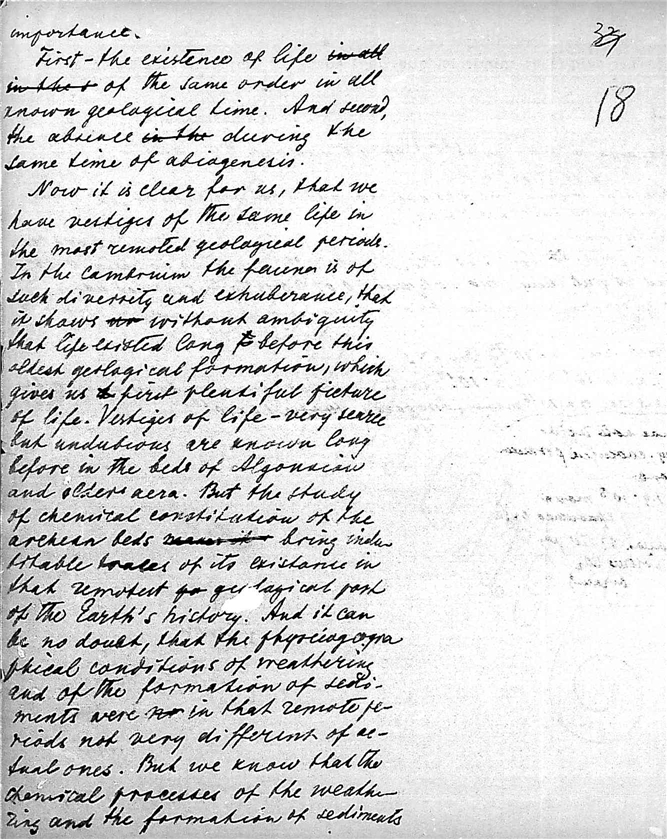 importance.
39
18
First - the existence of life in all
in the o of the same order in all
known geological time. And second,
the absence in the during the
same time of abiogenesis.
Now it is clear for us, that we
have vestiges of the same life in
the most remoted geological periods.
In the cambrium the fauna is of
such diversity and exhuberance, that
it shows no without ambiguity
that life existed long before this
oldest geological formation, which
gives us first plentiful picture
of life. Vestiges of life - very scarce
but undubious are known long
before in the beds of Algonkian
and older aera. But the study
of chemical constitution of the
archean beds bring indu-
bitable traces of its existance in
that remotest go geological part
of the Earth's history. And it can
be no doubt, that the physicogogra
phical conditions of weathering
and of the formation of sedi-
ments were no in that remote pe-
riods not very different of ac-
tual ones. But we know that the
chemical processes of the weathe-
ring and the formation of sediments